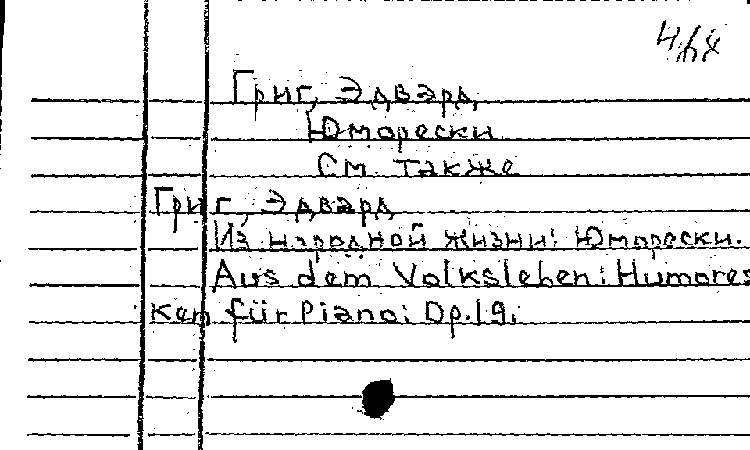 Григ, Эдвард
Юморески
См также
Григ, Эдвард
Из народной жизни: Юморески.
Aus dem Volksleben: Humores
ken für Piano: Op.19.